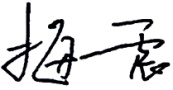 梅一震